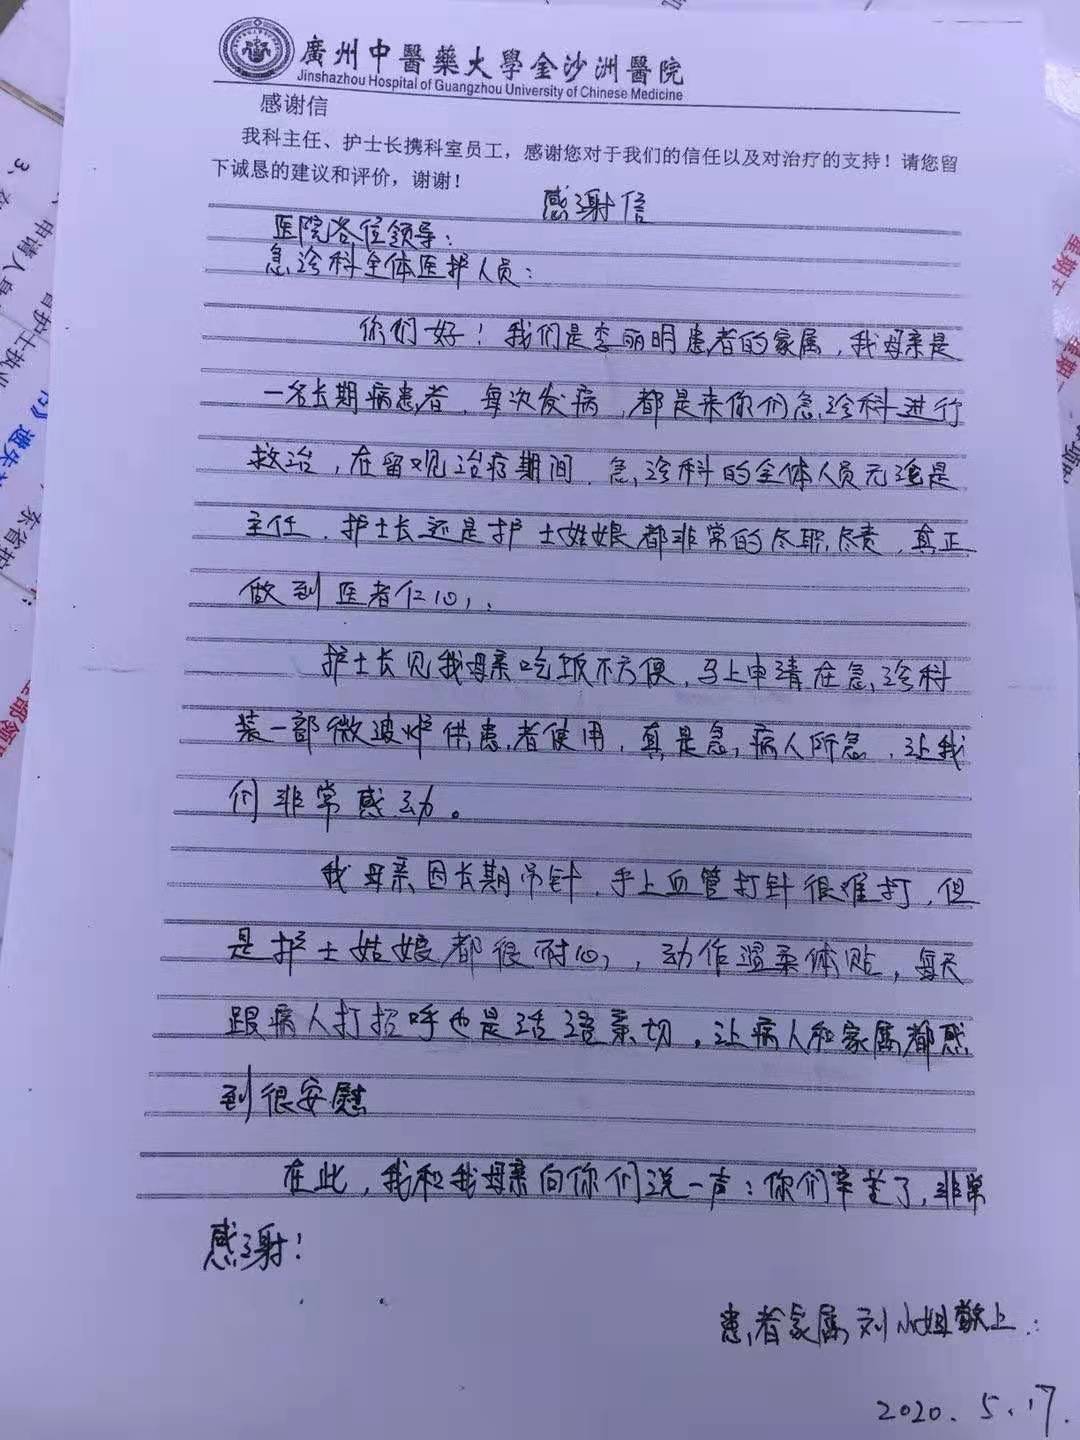 廣州中醫藥大學金沙洲醫院
Jinshazhou Hospital of Guangzhou University of Chinese Medicine
感谢信
我科主任、护士长携科室员工，感谢您对于我们的信任以及对治疗的支持！请您留
下诚恳的建议和评价，谢谢！
感谢信
医院各位领导：
急诊科全体医护人员：
你们好！我们是李丽明患者的家属，我母亲是
一名长期病患者，每次发病，都是来你们急诊科进行
救治，在留观治疗期间，急诊科的全体人员无论是
主任，护士长还是护士姑娘都非常的尽职尽责，真正
做到医者仁心，
护士长见我母亲吃饭不方便，马上申请在急诊科
装一部微波炉供患者使用，真是急病人所急，让我
们非常感动。
我母亲因长期吊针，手上血管打针很难打，但
是护士姑娘都很耐心，动作温柔体贴，每天
跟病人打招呼也是话语亲切，让病人和家属都感
到很安慰
在此，我和我母亲向你们说一声：你们辛苦了，非常
感谢！
患者家属刘小姐敬上
2020.5.17.